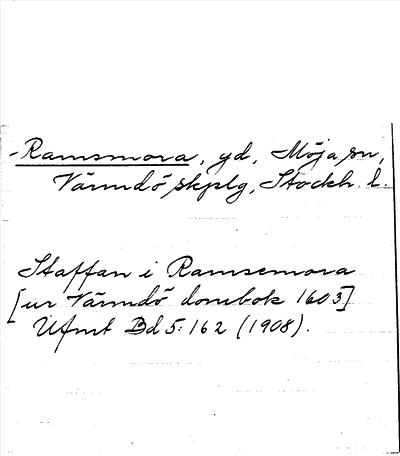 -Ramsmora, gd, Möja sn,
Värmdö skplg, Stockh. l.
Staffan i Ramsemora
[ur Värmdö dombok 1603]
Ufmt Bd 5:162 (1908).